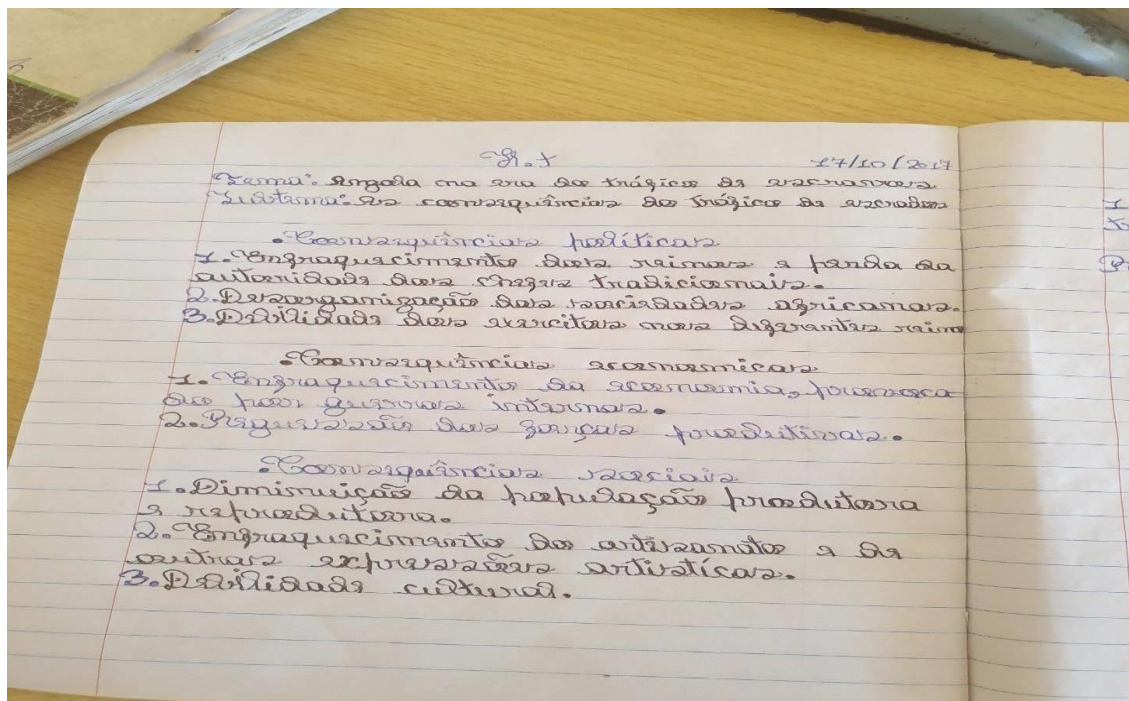 17/10/2017
Tema: Angola na era do tráfico de escravos
Subtema: As consequências do tráfico de escravos
•Consequências políticas
1. Enfraquecimento dos reinos e perda da
autoridade dos chefes tradicionais.
2. Desorganização das sociedades africanas.
3. Debilidade dos exercitos nos diferentes reino
•Consequências economicas
1. Enfraquecimento da economia, provoca
do por guerras internas.
2. das forças produtivas.
•Consequências sociais
1. Diminuição da população produtora
e reprodutora.
2. Enfraquecimento do artesanato e de
outras expressões artisticas.
3. Debilidade cultural.